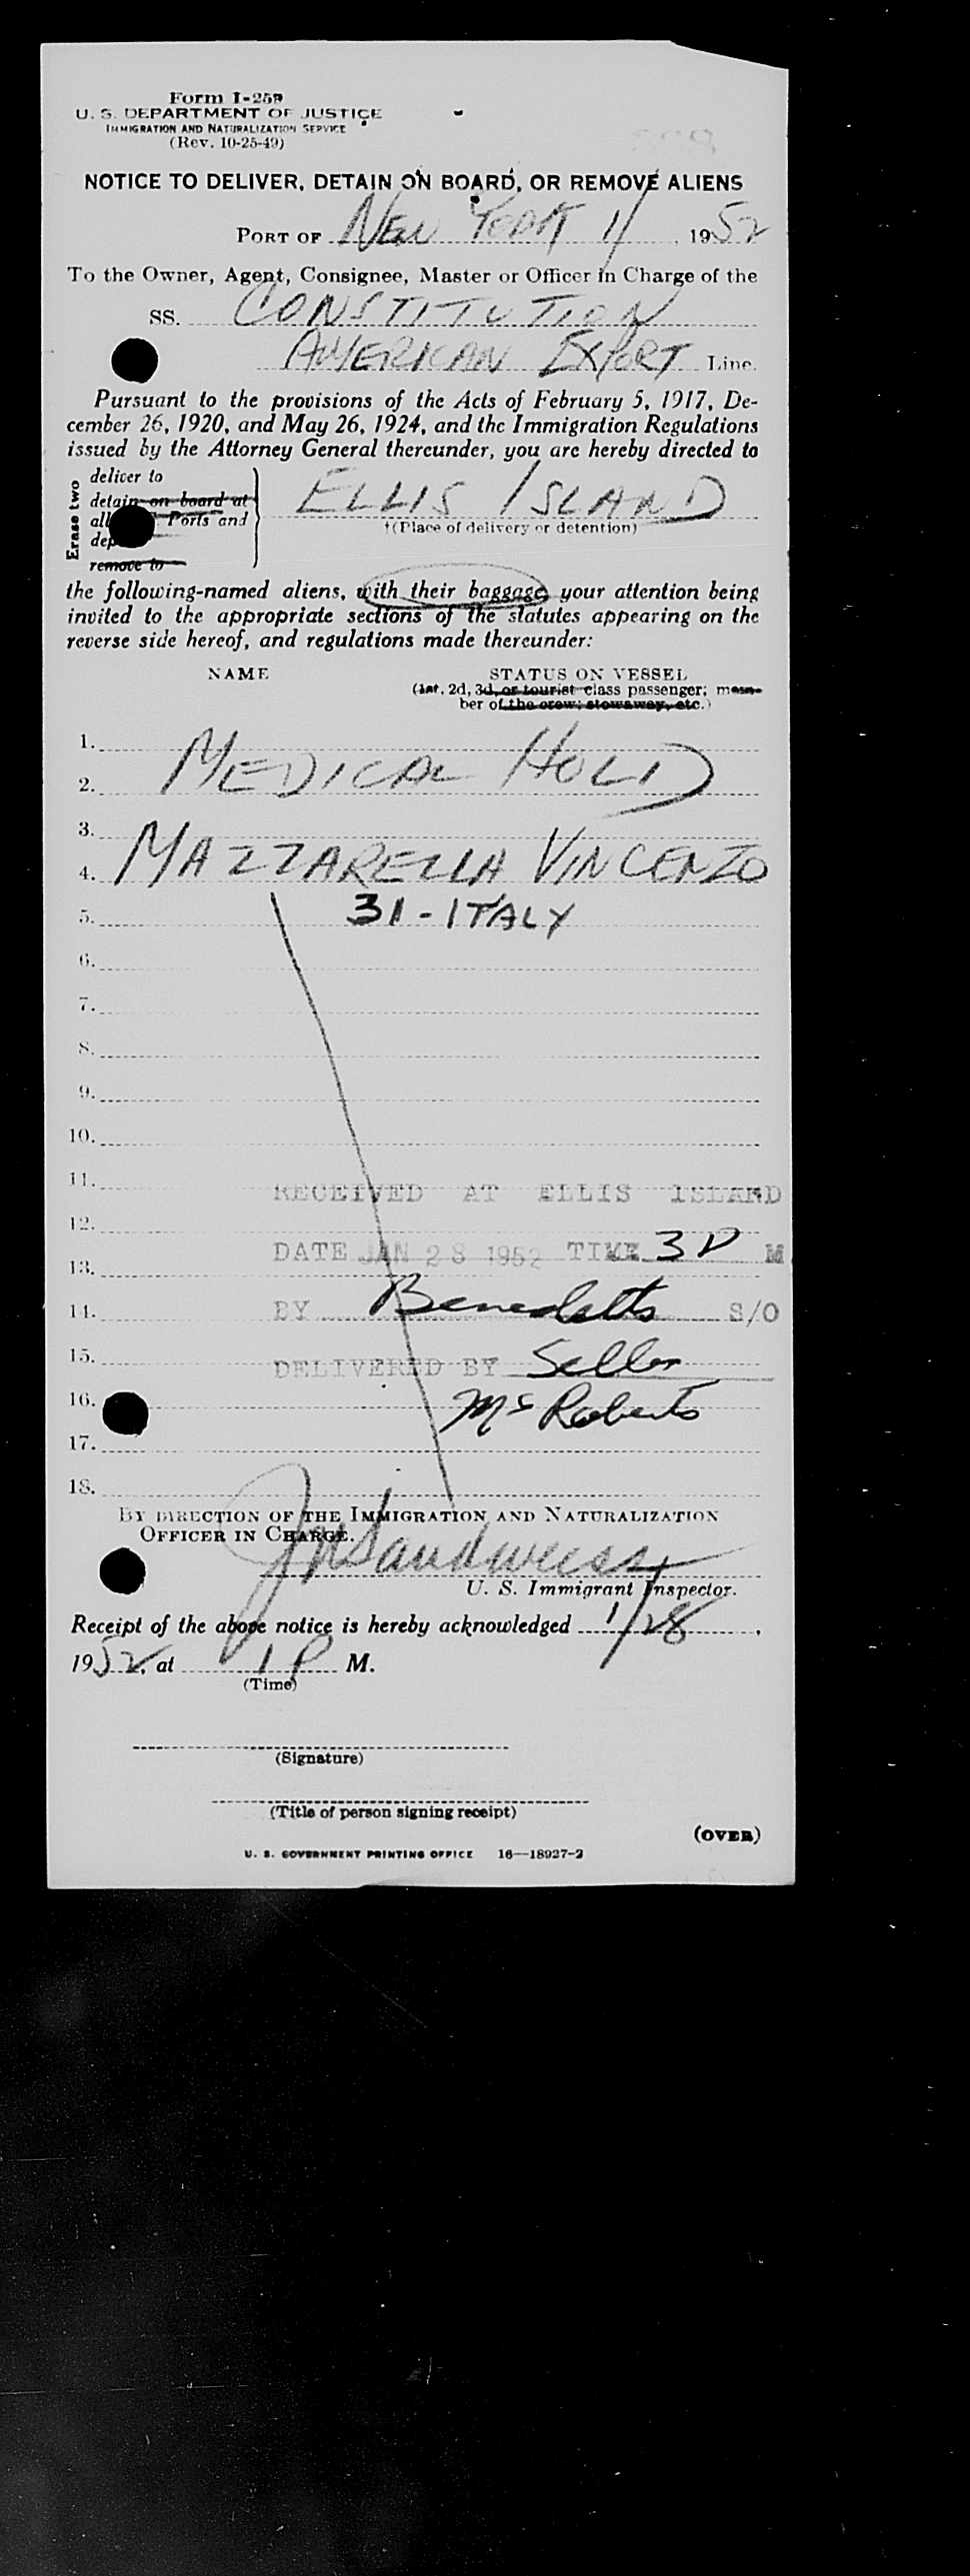 Form I-259
U. S. DEPARTMENT OF JUSTICE
IMMIGRATION AND NATURALIZATION SERVICE
(Rev. 10-25-49)
NOTICE TO DELIVER, DETAIN ON BOARD, OR REMOVE ALIENS
PORT OF NEW YORK 1/ , 1952
To the Owner, Agent, Consignee, Master or Officer in Charge of the
SS. CONSTITUTION
AMERICAN EXPORT Line.
Pursuant to the provisions of the Acts of February 5, 1917, De-
cember 26, 1920, and May 26, 1924, and the Immigration Regulations
issued by the Attorney General thereunder, you are hereby directed to
Erase two
deliver to
detain on board at
all Ports and
remove to
ELLIS ISLAND
†(Place of delivery or detention)
the following-named aliens, with their baggage, your attention being
invited to the appropriate sections of the statutes appearing on the
reverse side hereof, and regulations made thereunder:
NAME STATUS ON VESSEL
(1st, 2d, 3d, or tourist class passenger; mem-
ber of the crew; stowaway, etc.)
1.
2. MEDICAL HOLD
3.
4. MAZZARELLA VINCENZO
5. 31-ITALY
6.
7.
8.
9.
10.
11. RECEIVED AT ELLIS ISLAND
12.
DATE JAN 28 1952 TIME 3 P M
13.
14. BY Benedetto S/O
15. DELIVERED BY Seller
16. McRoberts
17.
18.
BY DIRECTION OF THE IMMIGRATION AND NATURALIZATION
OFFICER IN CHARGE.
J M Sandweiss
U. S. Immigrant Inspector.
Receipt of the above notice is hereby acknowledged 1/28,
1952, at 1 P M.
(Time)
(Signature)
(Title of person signing receipt)
(OVER)
U. S. GOVERNMENT PRINTING OFFICE 16—18927-2